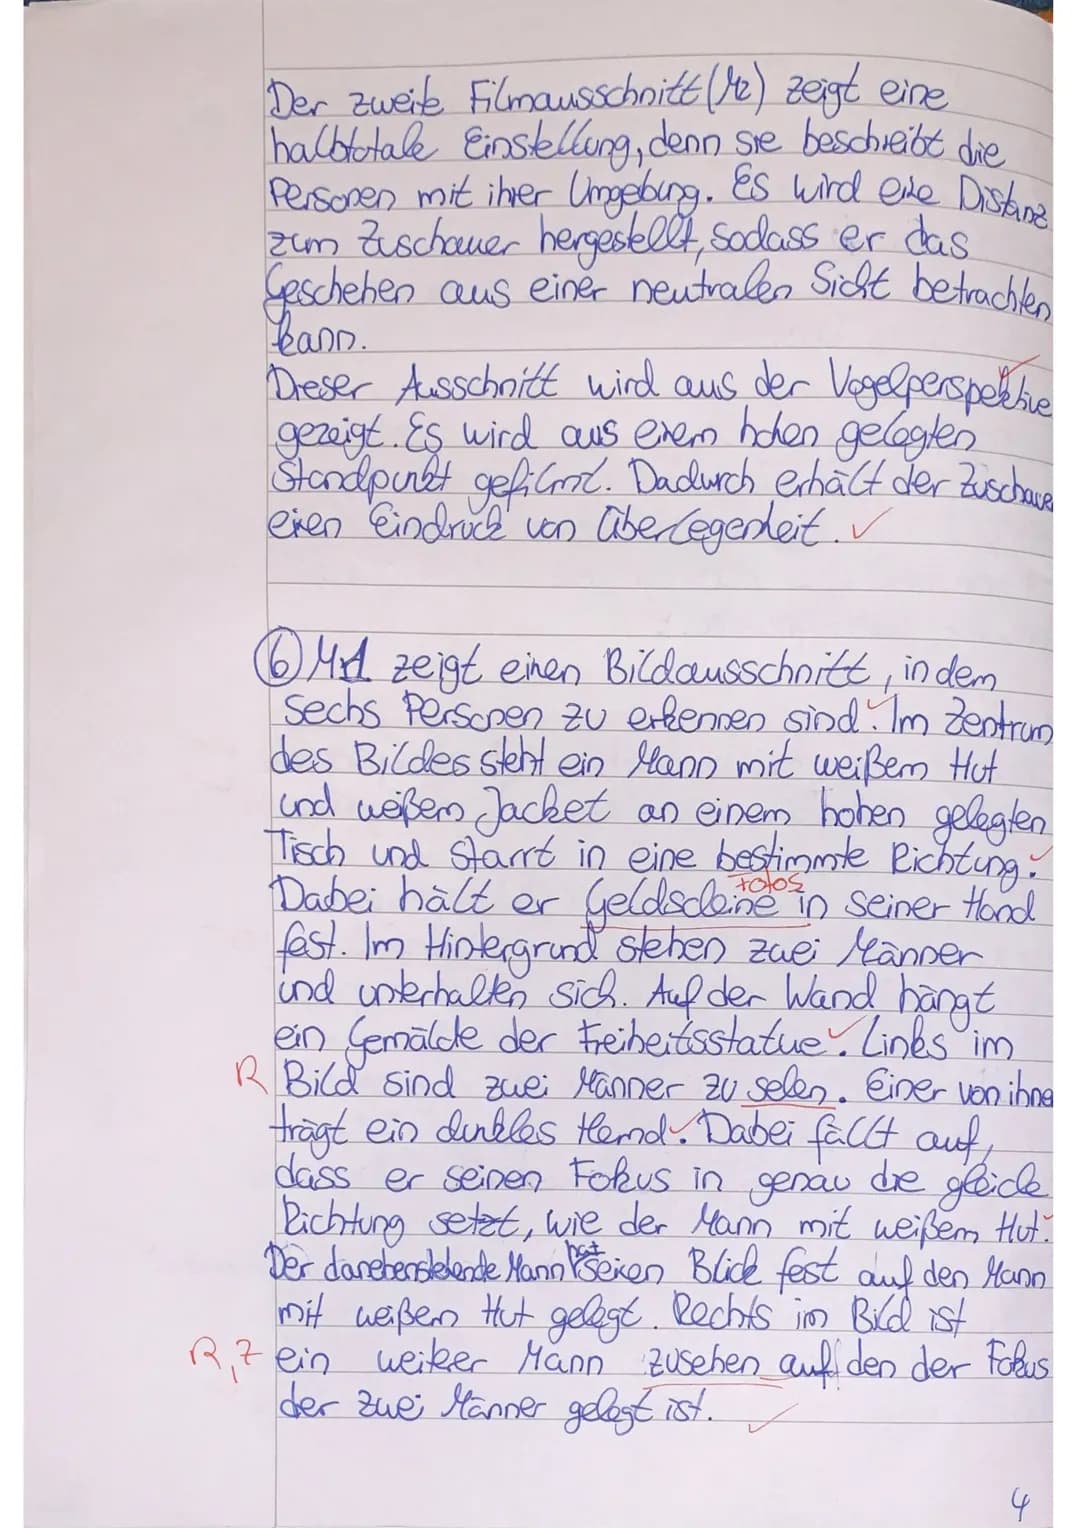 Der zweite Filmausschnitt (M2) zeigt eine
halbtotale Einstellung, denn sie beschreibt die
Personen mit ihrer Umgebung. Es wird eine Distanz
zum Zuschauer hergestellt, sodass er das
Geschehen aus einer neutralen Sicht betrachten
kann.
Dieser Ausschnitt wird aus der Vogelperspektive
gezeigt. Es wird aus einem hohen gelegten
Standpunkt gefilmt. Dadurch erhält der Zuschauer
einen Eindruck von Überlegenheit. ✓
6 M1 zeigt einen Bildausschnitt, in dem
sechs Personen zu erkennen sind. Im Zentrum
des Bildes steht ein Mann mit weißem Hut
und weißem Jacket an einem hohen gelegten
Tisch und starrt in eine bestimmte Richtung.
Fotos
Dabei hält er Geldscheine in seiner Hand
fest. Im Hintergrund stehen zwei Männer
und unterhalten sich. Auf der Wand hängt
ein Gemälde der Freiheitsstatue. Links im
R Bild sind zwei Männer zu sehen. Einer von ihne
trägt ein dunkles Hemd. Dabei fällt auf,
dass er seinen Fokus in genau die gleiche
Richtung setzt, wie der Mann mit weißem Hut.
Der danebenstehende Mann hat seinen Blick fest auf den Mann
mit weißen Hut gelegt. Rechts im Bild ist
R, Z ein weiterer Mann zusehen auf den der Fokus
der zwei Männer gelegt ist. ✓
4